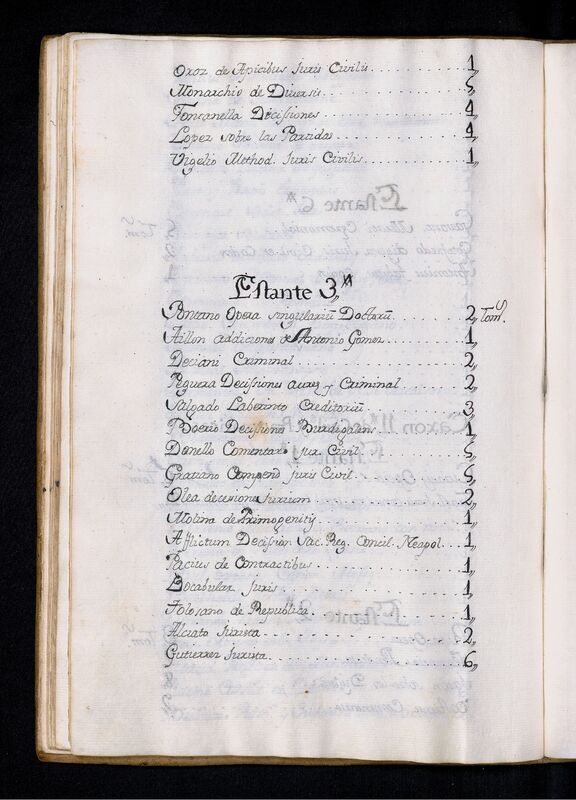 Oroz de Apicibus Juris Civilis. . . . . . . . . . . 1,,
Monarchio de Diversis . . . . . . . . . . . . . . . 5,,
Fontanella Decissiones . . . . . . . . . . . . . . . 4,,
Lopez sobre las Partidas . . . . . . . . . . . . . . 4,,
Vigelio Method. Juris Civilis . . . . . . . . . . . . 1,,
Estante 3,,
Pontano Opera singulariũ Doctorũ. . . . . . . . . 2,, Tom.s
Aillon addiciones de Antonio Gomez . . . . . . . 1,,
Deciani Criminal . . . . . . . . . . . . . . . . . . . 2,,
Peguera Decissiones aurez y Criminal . . . . . . 2,,
Salgado Laberinto Creditoriũ . . . . . . . . . . . 3,,
Boerio Decisiones Burdegalens . . . . . . . . . . 1,,
Donello Comentario Jur. Civil . . . . . . . . . . . 5,,
Gratiano Compend Juris Civil . . . . . . . . . . . 5,,
Olea decesione Jurium . . . . . . . . . . . . . . . 2,,
Molina de Primogenitij . . . . . . . . . . . . . . . 1,,
Afflictum Decission Sac. Reg. Concil. Neapol . . . 1,,
Pacius de Contractibus . . . . . . . . . . . . . . . 1,,
Bocabular Juris . . . . . . . . . . . . . . . . . . . . 1,,
Tolosano de Republica . . . . . . . . . . . . . . . 1,,
Alciato Jurista . . . . . . . . . . . . . . . . . . . . . 2,,
Gutierrez Jurista. . . . . . . . . . . . . . . . . . . . 6,,